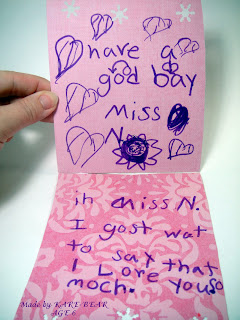 have a
god bay
miss
N.
ih miss N.
I gost wat
to say that
I Love you so
moch.
Made by KARE BEAR
AGE 6